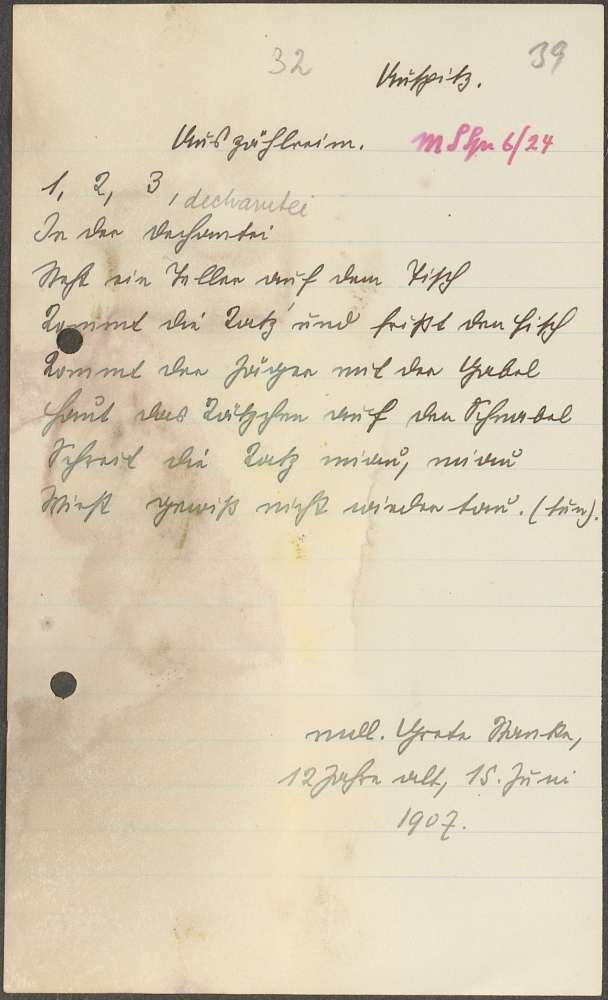 32 39
Auspitz.
Auszählreim. 6/24
1, 2, 3, dechantei
In der Dechantei
Steht ein Teller auf dem Tisch
Kommt die Katz' und frißt den Fisch
Kommt der Jäger mit der Gabel
Haut das Kätzchen auf den Schnabel
Schreit die Katz miau, miau
Wirst gewiß nicht wieder tau. (tun).
mdl. Grete Stanke,
12 Jahre alt, 15. Juni
1907.